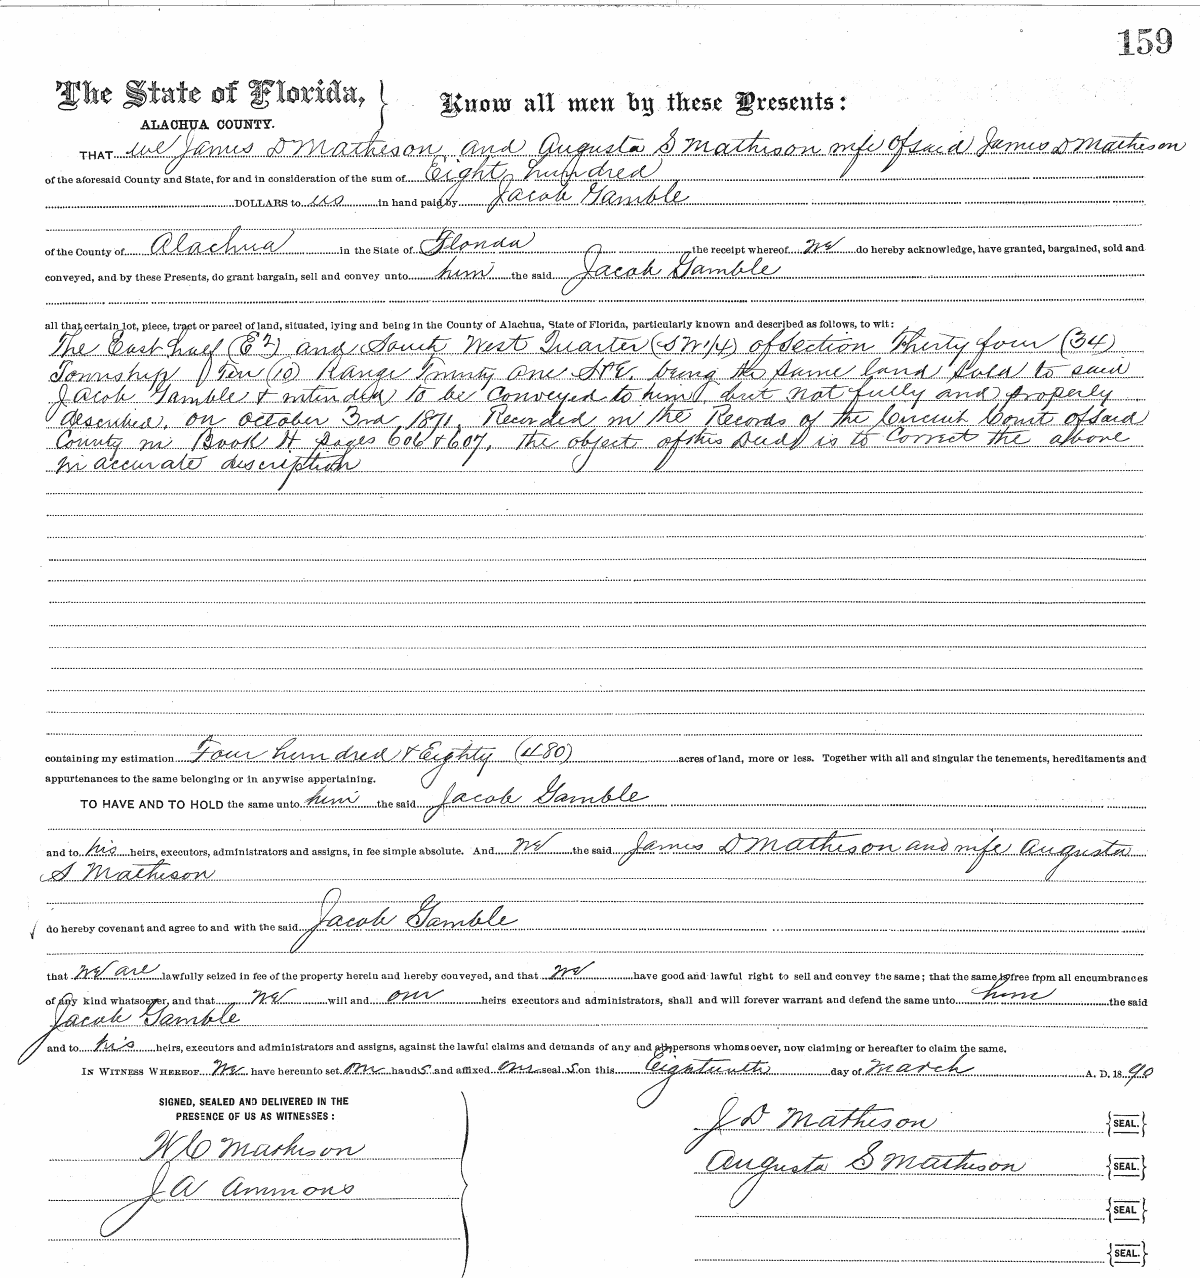 159
The State of Florida, } Know all men by these Presents:
ALACHUA COUNTY.
THAT we James D Matheson and Augusta S Matheson wife of said James D Matheson
of the aforesaid County and State, for and in consideration of the sum of Eight hundred
DOLLARS to us in hand paid by Jacob Gamble
of the County of Alachua in the State of Florida the receipt whereof we do hereby acknowledge, have granted, bargained, sold and
conveyed, and by these Presents, do grant bargain, sell and convey unto him the said Jacob Gamble
all that certain lot, piece, tract or parcel of land, situated, lying and being in the County of Alachua, State of Florida, particularly known and described as follows, to wit:
The East half (E2) and South West Quarter (SW1/4) of Section Thirty four (34)
Township Ten (10) Range Twenty one S&E. being the same land sold to said
Jacob Gamble & intended to be Conveyed to him, but not fully and properly
described, on october 3rd 1871, Recorded in the Records of the Circuit Court of said
County in Book H pages 606 & 607, the object of this Deed is to Correct the above
in accurate description
containing my estimation Four hundred & Eighty (480) acres of land, more or less. Together with all and singular the tenements, hereditaments and
appurtenances to the same belonging or in anywise appertaining.
TO HAVE AND TO HOLD the same unto him the said Jacob Gamble
and to his heirs, executors, administrators and assigns, in fee simple absolute. And we the said James D Matheson and wife Augusta
S Matheson
do hereby covenant and agree to and with the said Jacob Gamble
that we are lawfully seized in fee of the property herein and hereby conveyed, and that we have good and lawful right to sell and convey the same; that the same is free from all encumbrances
of any kind whatsoever, and that we will and our heirs executors and administrators, shall and will forever warrant and defend the same unto him the said
Jacob Gamble
and to his heirs, executors and administrators and assigns, against the lawful claims and demands of any and all persons whomsoever, now claiming or hereafter to claim the same.
IN WITNESS WHEREOF We have hereunto set our hands and affixed our seals on this Eighteenth day of March A. D. 1890
SIGNED, SEALED AND DELIVERED IN THE
PRESENCE OF US AS WITNESSES:
W C Matheson
J A Ammons
J D Matheson {SEAL.}
Augusta S Matheson {SEAL.}
{SEAL}
{SEAL.}